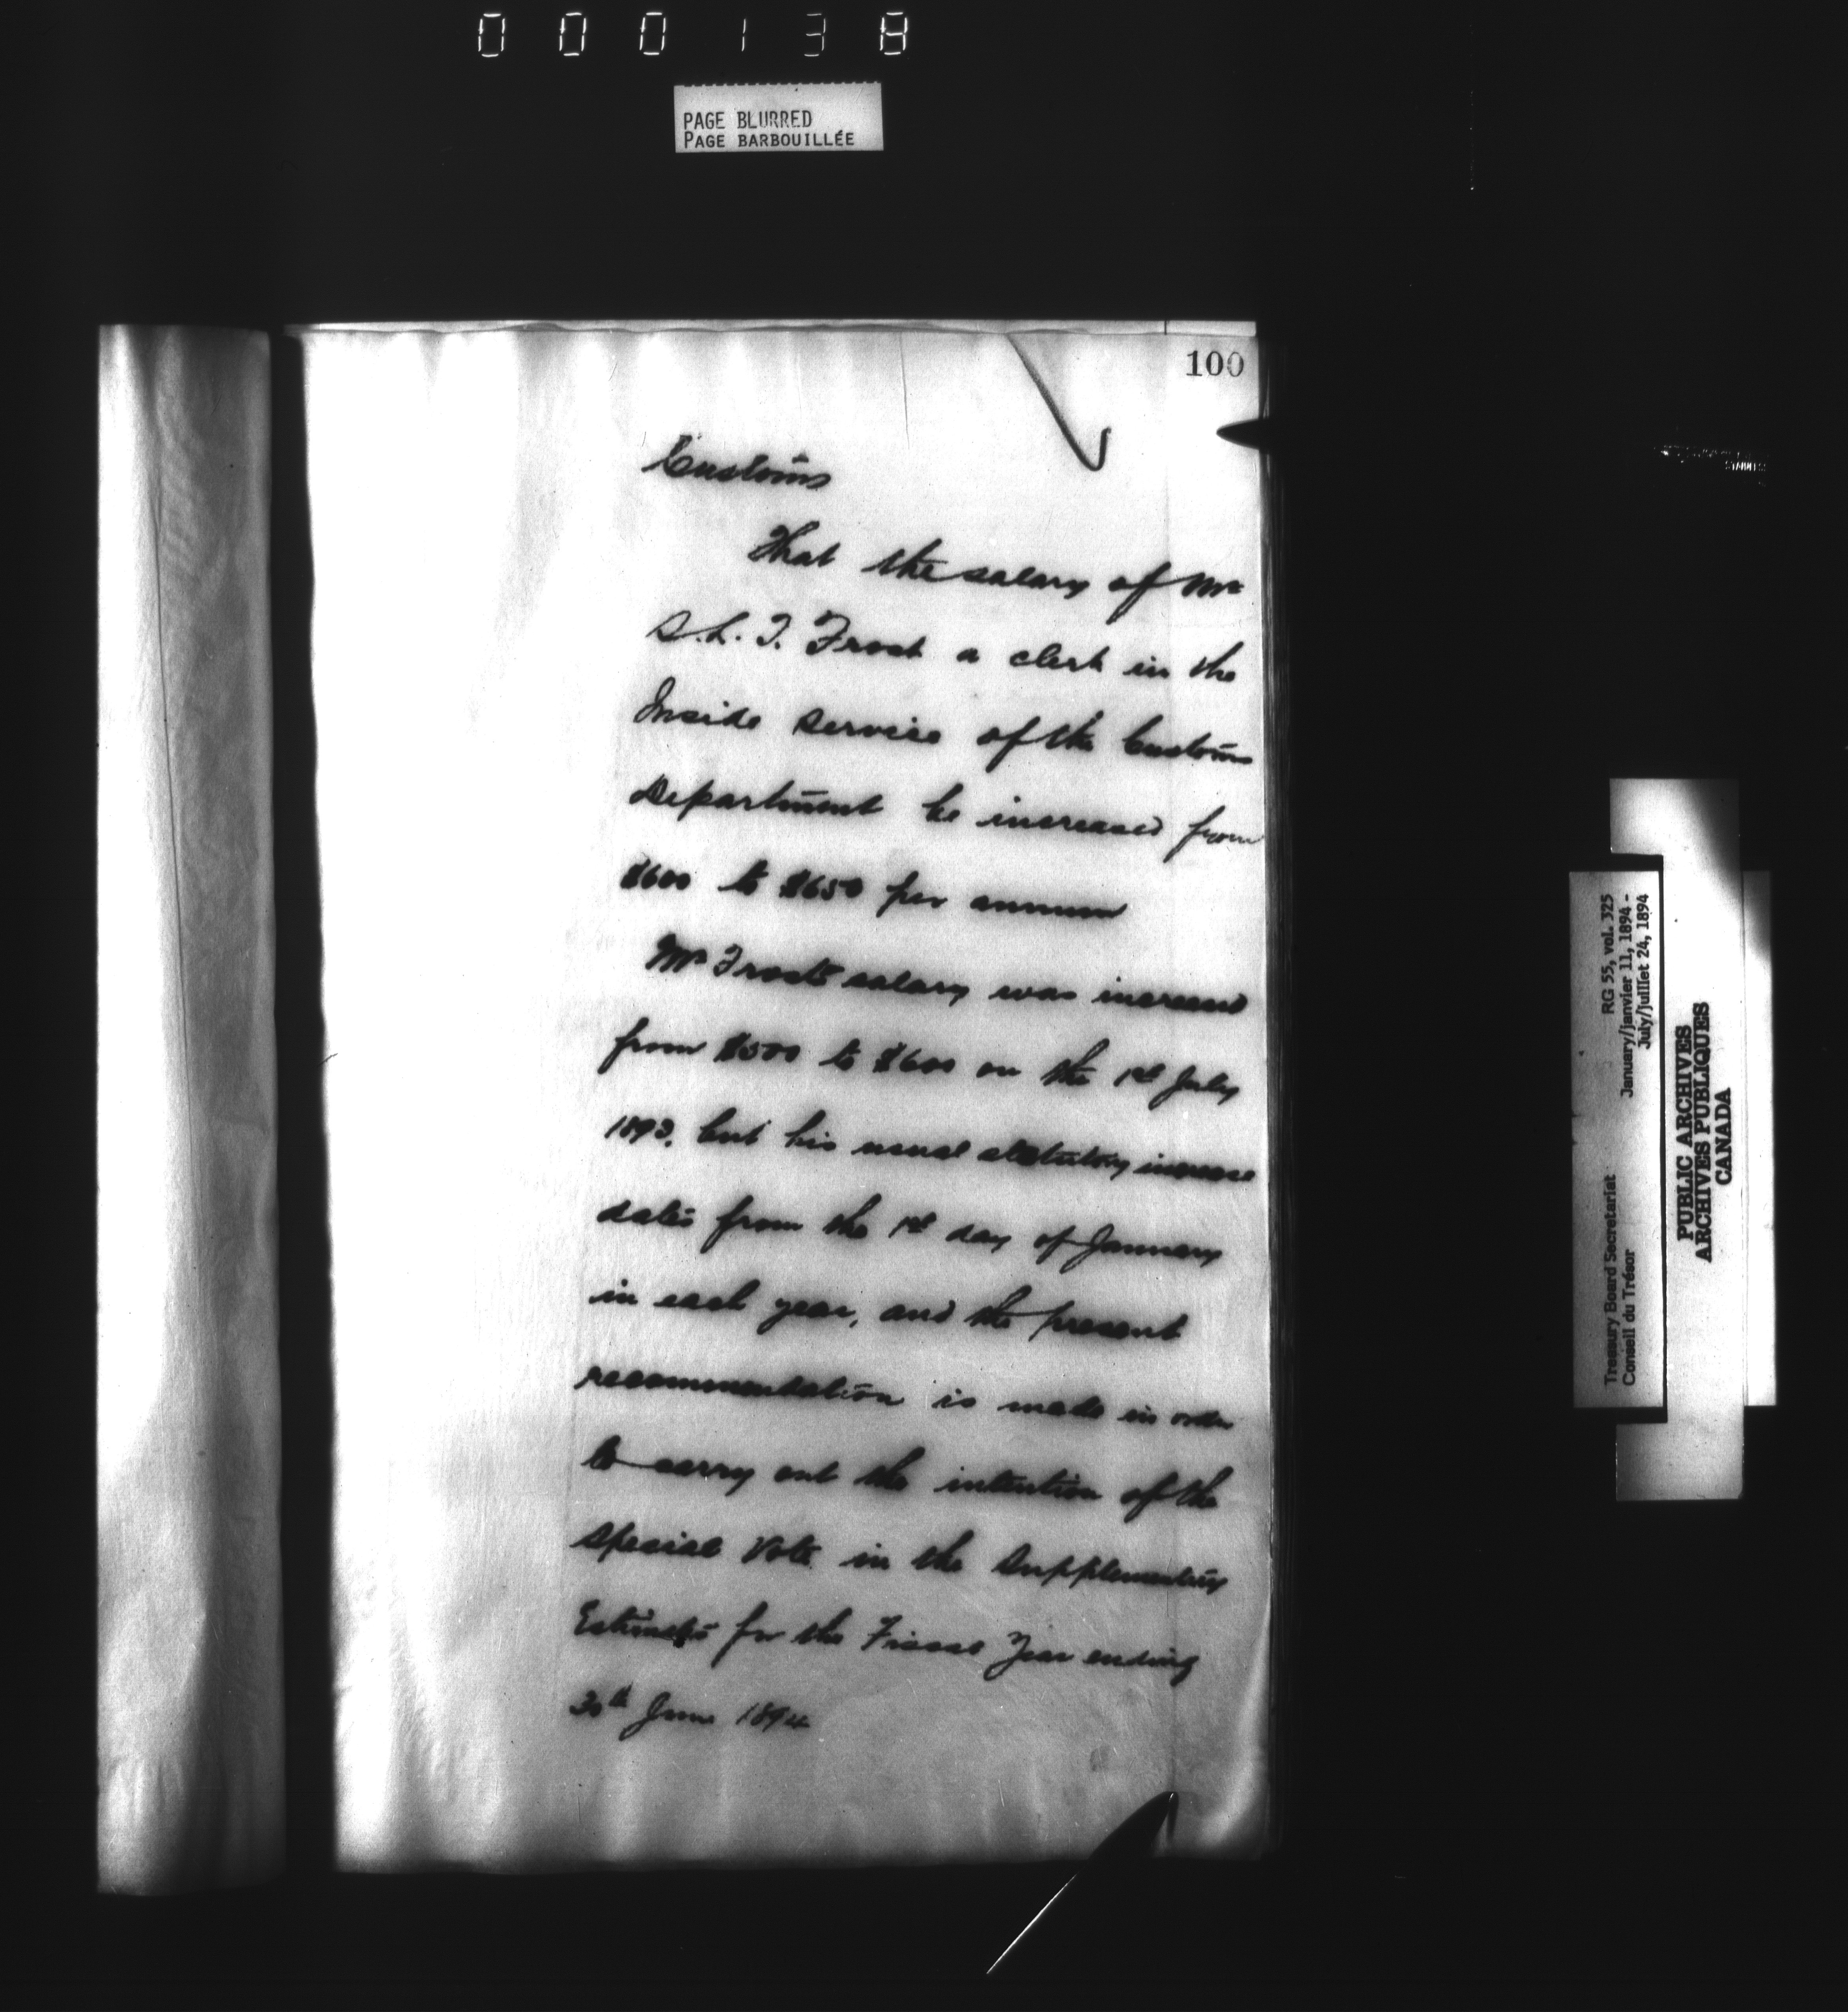 000138
PAGE BLURRED
PAGE BARBOUILLÉE
100
Customs
That the salary of Mr
S. L. T. Frost a clerk in the
Inside service of the Customs
Department be increased from
$600 to $650 per annum
Mr Frost's salary was increased
from $500 to $600 on the 1st July
1893, but his usual statutory increase
dates from the 1st day of January
in each year, and the present
recommendation is made in order
to carry out the intention of the
special Vote in the Supplementary
Estimates for the Fiscal Year ending
30th June 1894
Treasury Board Secretariat RG 55, vol. 325
Conseil du Trésor January/janvier 11, 1894 -
July/juillet 24, 1894
PUBLIC ARCHIVES
ARCHIVES PUBLIQUES
CANADA